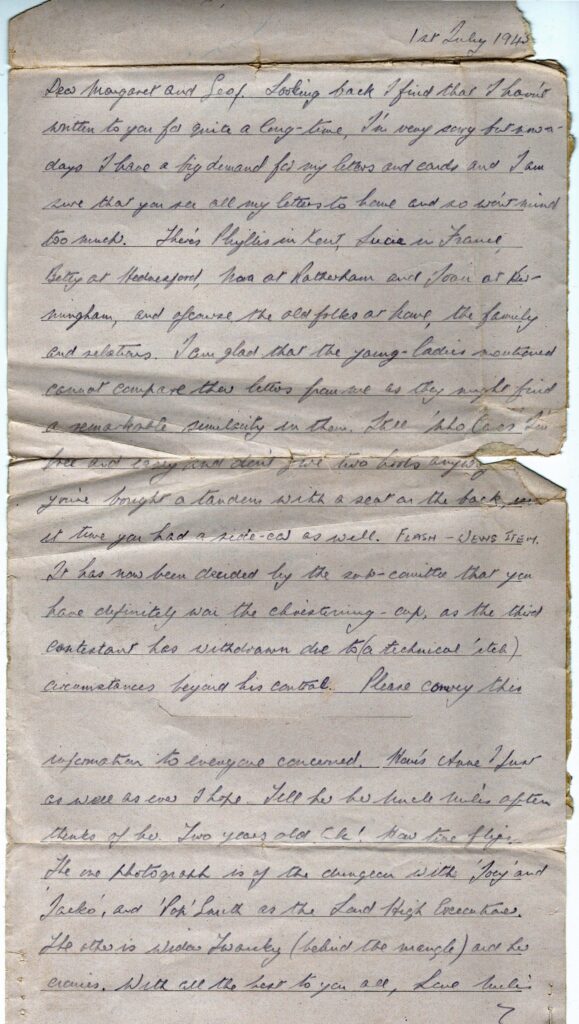 1st July 194
Dear Margaret and Geof. Looking back I find that I haven't
written to you for quite a long-time, I'm very sorry but now-a-
days I have a big demand for my letters and cards and I am
sure that you see all my letters to home and so won't mind
too much. There's Phyllis in Kent, Lucie in France,
Betty at Hednesford, Nora at Rotherham and Joan at Bir-
mingham, and ofcourse the old folks at home, the family
and relations. I am glad that the young-ladies mentioned
cannot compare their letters from me as they might find
a remarkable similarity in them. Still 'who cares' I'm
free and easy and don't give two hoots anyway
you've bought a tandem with a seat on the back,
it time you had a side-car as well. FLASH - NEWS ITEM.
It has now been decided by the sub-comittee that you
have definitely won the christening-cup, as the third
contestant has withdrawn due to (a technical 'itch)
circumstances beyond his control. Please convey this
information to everyone concerned. How's Anne? Just
as well as ever I hope. Tell her her Uncle often
thinks of her. Two years old How time flys.
The one photograph is of the dungeon with 'Joey' and
'Jacko', and 'Pop' Smith as the Lord High Executioner.
The other is widow Twankey (behind the mangle) and her
cronies. With all the best to you all, Love